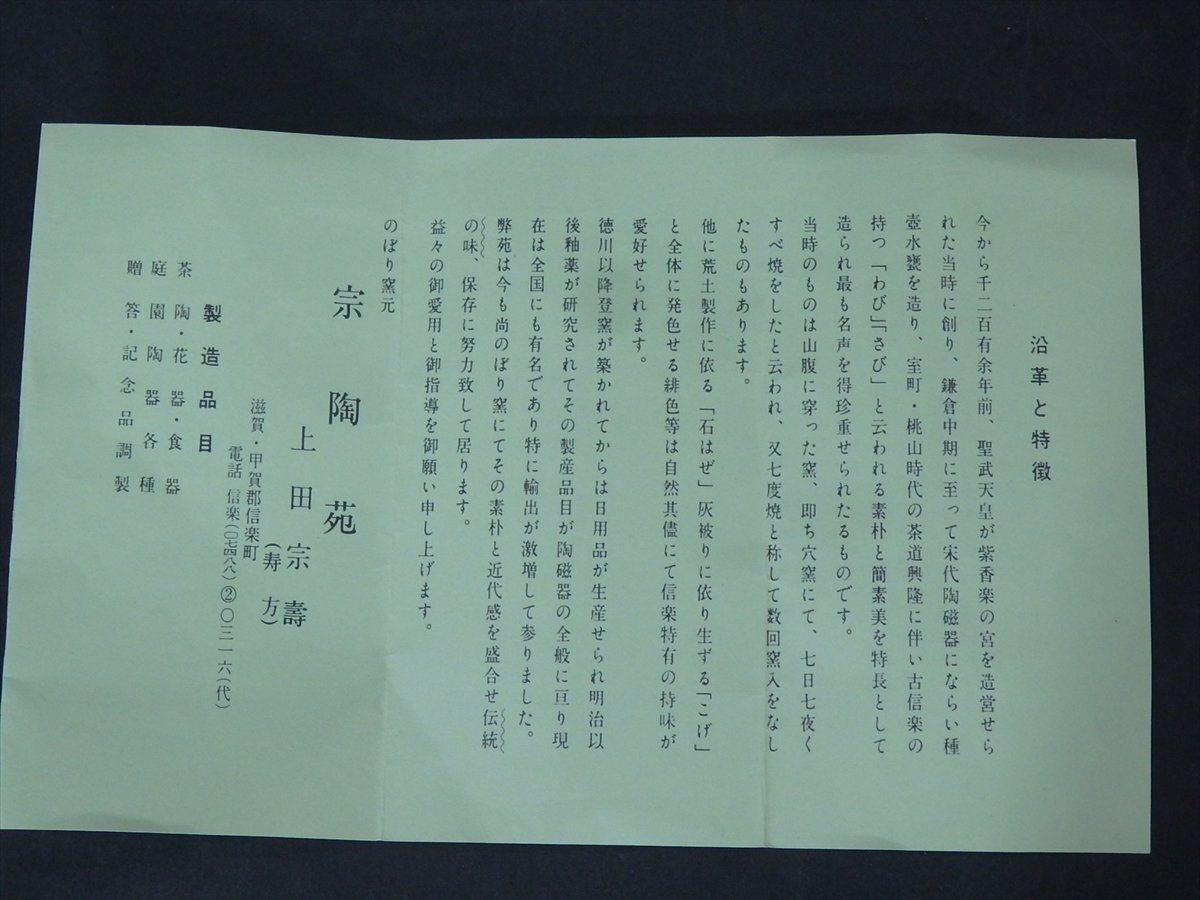 沿革と特徴
今から千二百有余年前、聖武天皇が紫香楽の宮を造営せら
れた当時に創り、鎌倉中期に至って宋代陶磁器にならい種
壺水甕を造り、室町・桃山時代の茶道興隆に伴い古信楽の
持つ「わび」「さび」と云われる素朴と簡素美を特長として
造られ最も名声を得珍重せられたるものです。
当時のものは山腹に穿った窯、即ち穴窯にて、七日七夜く
すべ焼をしたと云われ、又七度焼と称して数回窯入をなし
たものもあります。
他に荒土製作に依る「石はぜ」灰被りに依り生ずる「こげ」
と全体に発色せる緋色等は自然其儘にて信楽特有の持味が
愛好せられます。
徳川以降登窯が築かれてからは日用品が生産せられ明治以
後釉薬が研究されてその製産品目が陶磁器の全般に亘り現
在は全国にも有名であり特に輸出が激増して参りました。
弊苑は今も尚のぼり窯にてその素朴と近代感を盛合せ伝統
の味、保存に努力致して居ります。
益々の御愛用と御指導を御願い申し上げます。
のぼり窯元
宗陶苑
上田宗壽
(寿方)
滋賀・甲賀郡信楽町
電話 信楽(〇七四八八)②〇三一六(代)
製造品目
茶陶・花器・食器
庭園陶器各種
贈答・記念品調製